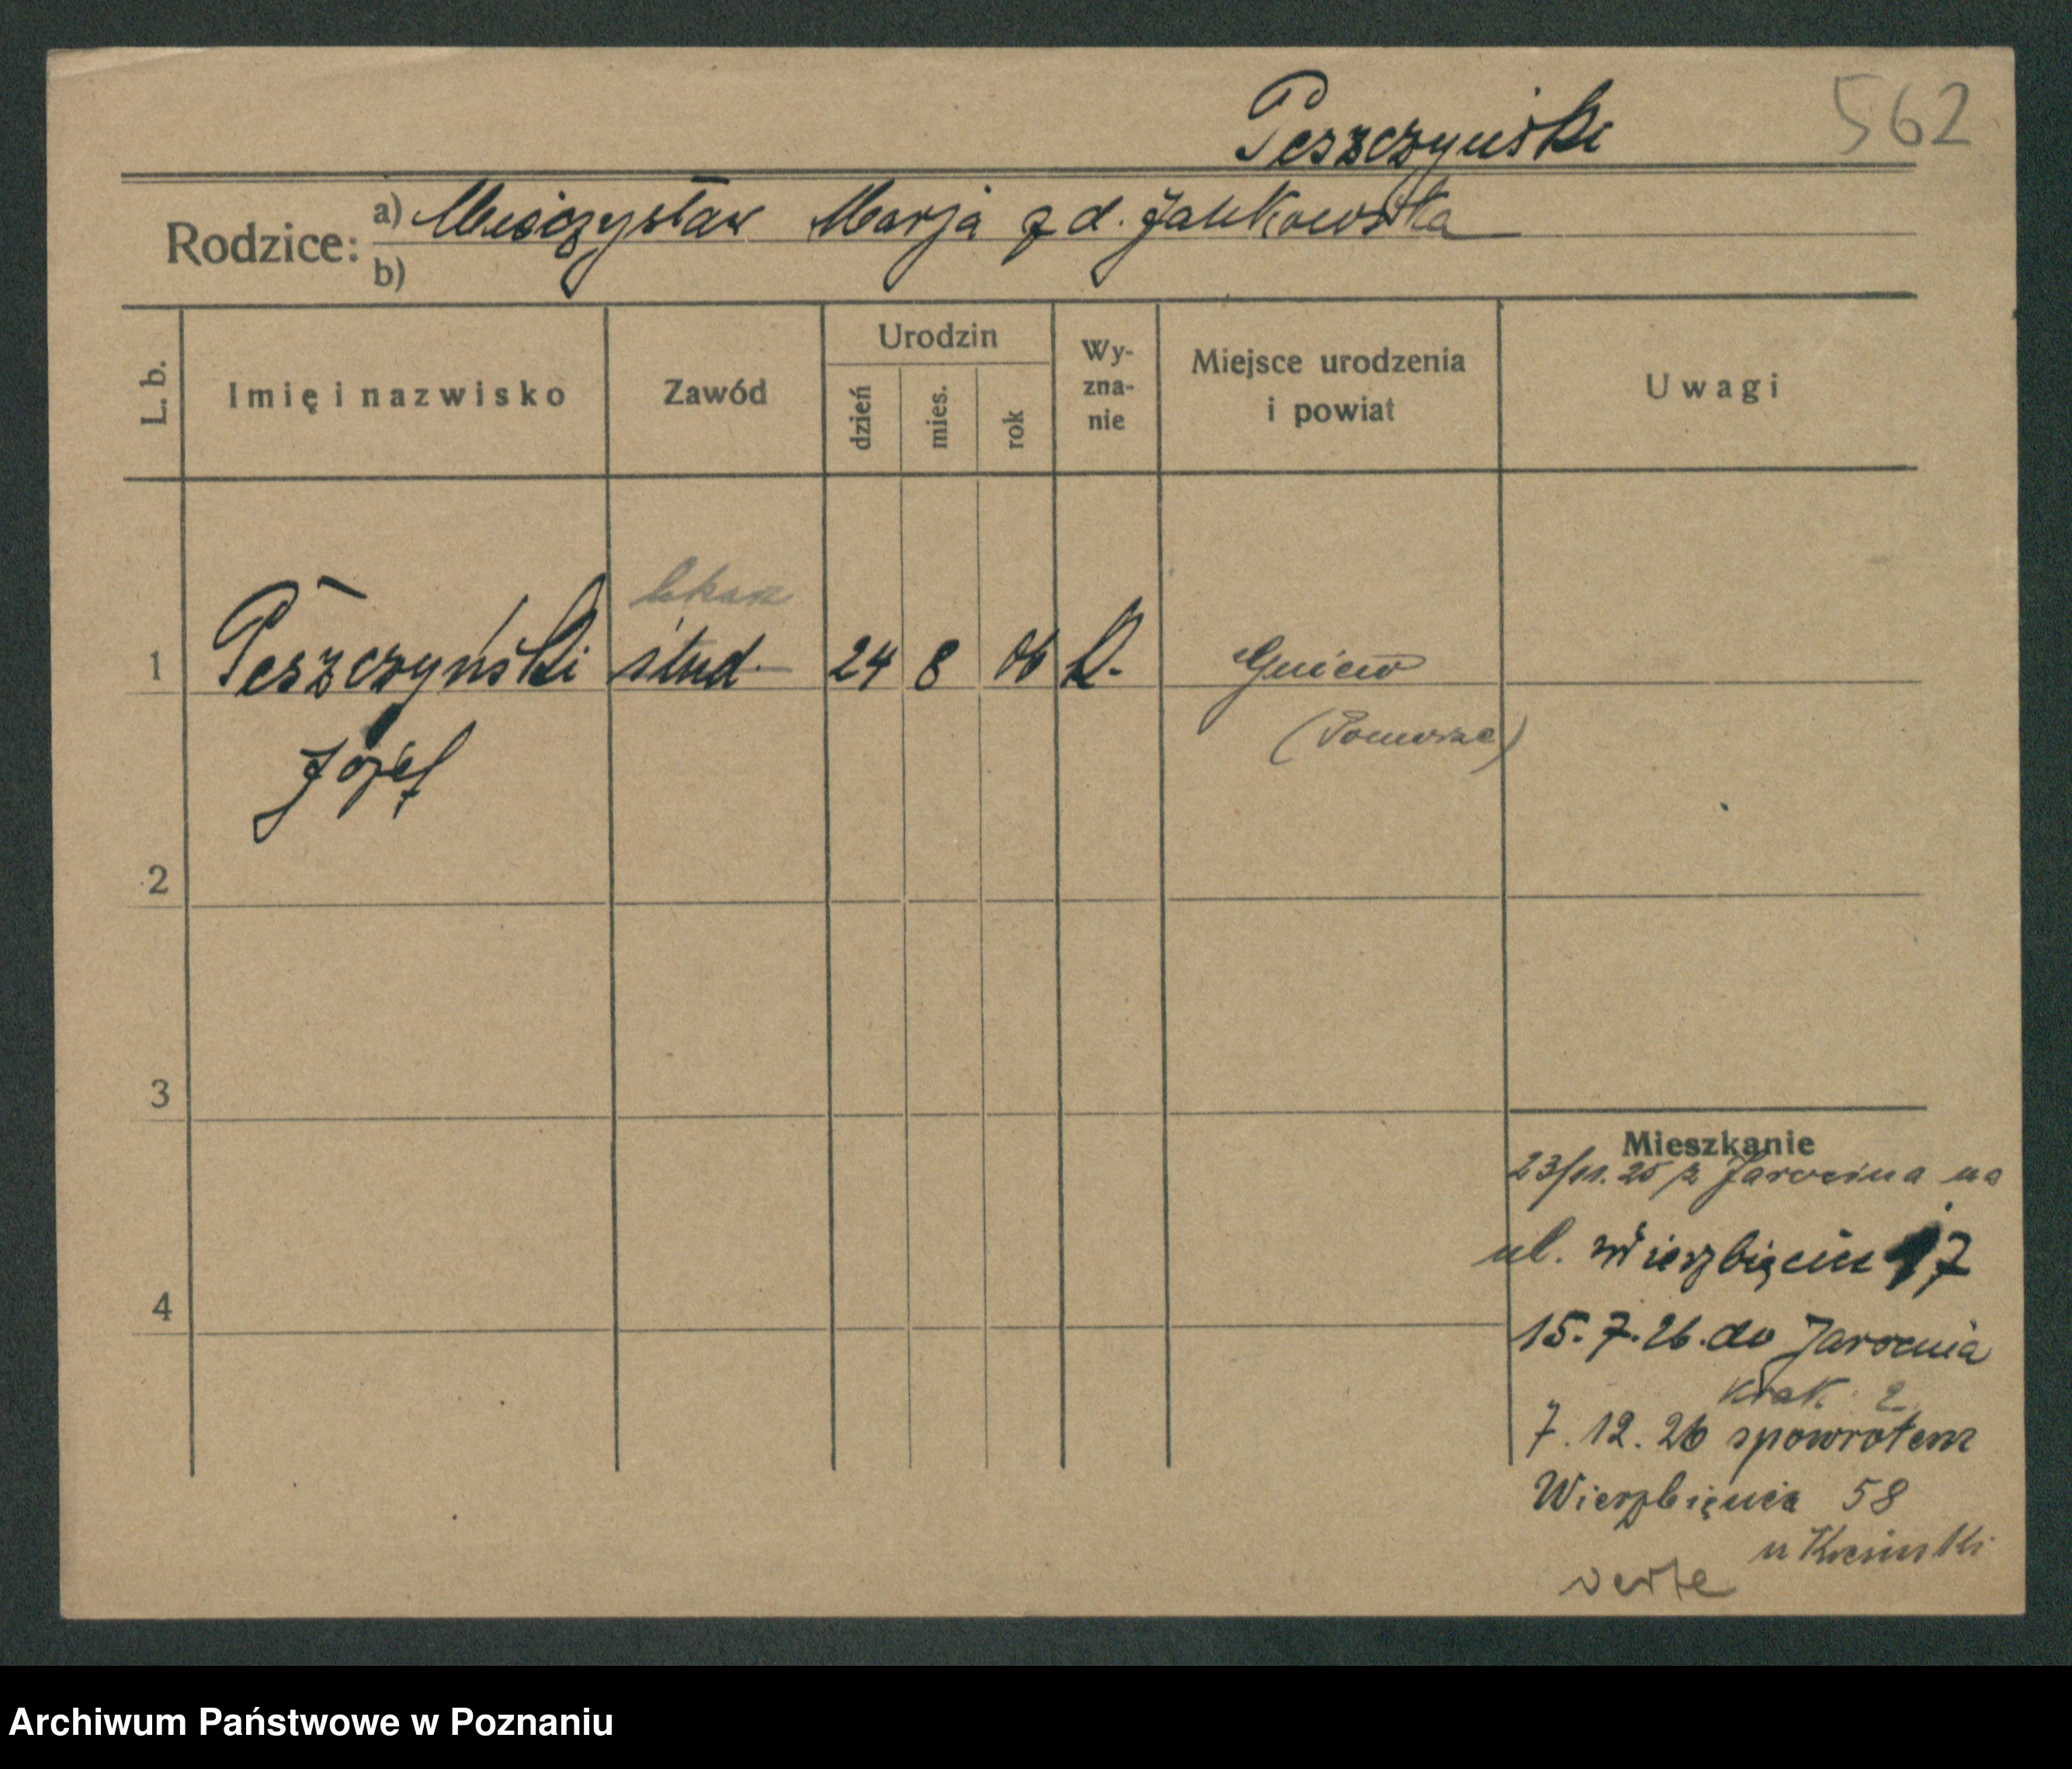 Peszczyński 562
Rodzice: a) Mieczysław Marja z d. Jankowska
b)
L. b. Imię i nazwisko Zawód Urodzin dzień mies. rok Wy-zna-nie Miejsce urodzenia i powiat Uwagi
lekarz
1 Peszczyński stud. 24 8 06 Gniew
(Pomorze)
Józef
2
3
Mieszkanie
23/11.25 z Jarocina na
ul. Wierzbięcin 17
4
15.7.26. do Jarocina
Krak. 2
7.12.26 spowrotem
Wierzbięcice 58
u
verte
Archiwum Państwowe w Poznaniu